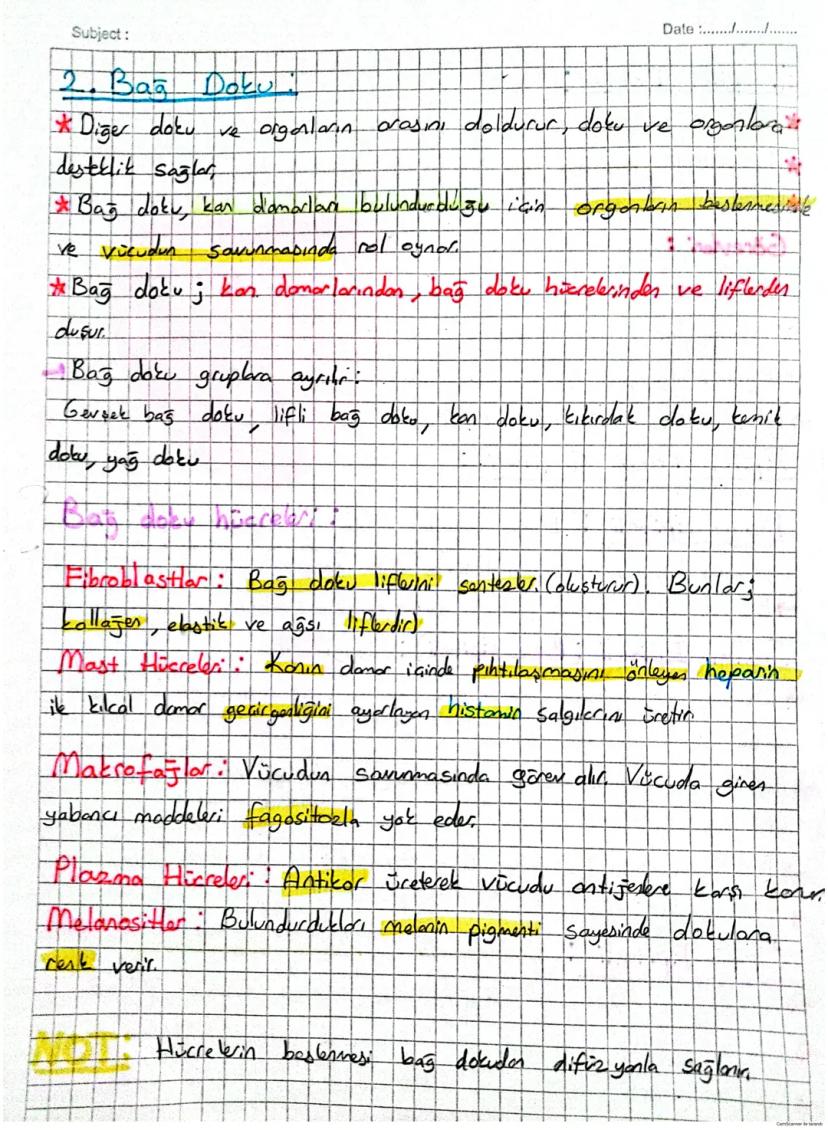 Subject :
Date :......./......./.......
2. Bağ Doku :
* Diğer doku ve organların arasını doldurur, doku ve organlara *
desteklik sağlar, *
* Bağ doku, kan damarları bulundurduğu için organların beslenmesinde
ve vücudun savunmasında rol oynar.
* Bağ doku ; kan damarlarından, bağ doku hücrelerinden ve liflerden
oluşur.
Bağ doku gruplara ayrılır :
Gevşek bağ doku, lifli bağ doku, kan doku, kıkırdak doku, kemik
doku, yağ doku
Bağ doku hücreleri :
Fibroblastlar : Bağ doku liflerini sentezler. (oluşturur). Bunlar;
kollajen, elastik ve ağsı liflerdir)
Mast Hücreleri : Kanın damar içinde pıhtılaşmasını önleyen heparin
ile kılcal damar geçirgenliğini ayarlayan histamin salgılarını üretir
Makrofajlar : Vücudun savunmasında görev alır. Vücuda giren
yabancı maddeleri fagositozla yok eder.
Plazma Hücreleri : Antikor üreterek vücudu antijenlere karşı korur.
Melanositler : Bulundurdukları melanin pigmenti sayesinde dokulara
renk verir.
NOT: Hücrelerin beslenmesi bağ dokudan difüzyonla sağlanır.
CamScanner ile tarandı